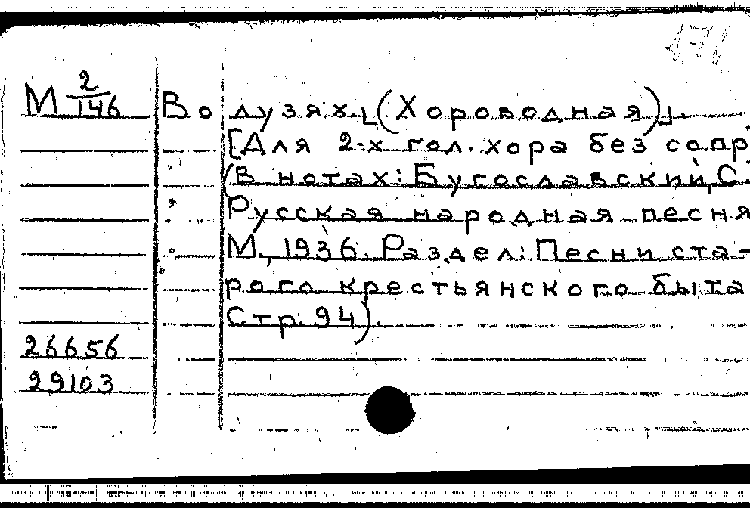 М 2/146 Во лузях. (Хороводная).
[Для 2-х гол. хора без сопр
(В нотах: Бугославский, С.
Русская народная песня
М., 1936. Раздел: Песни ста-
рого крестьянского быта
Стр. 94).
26656
29103